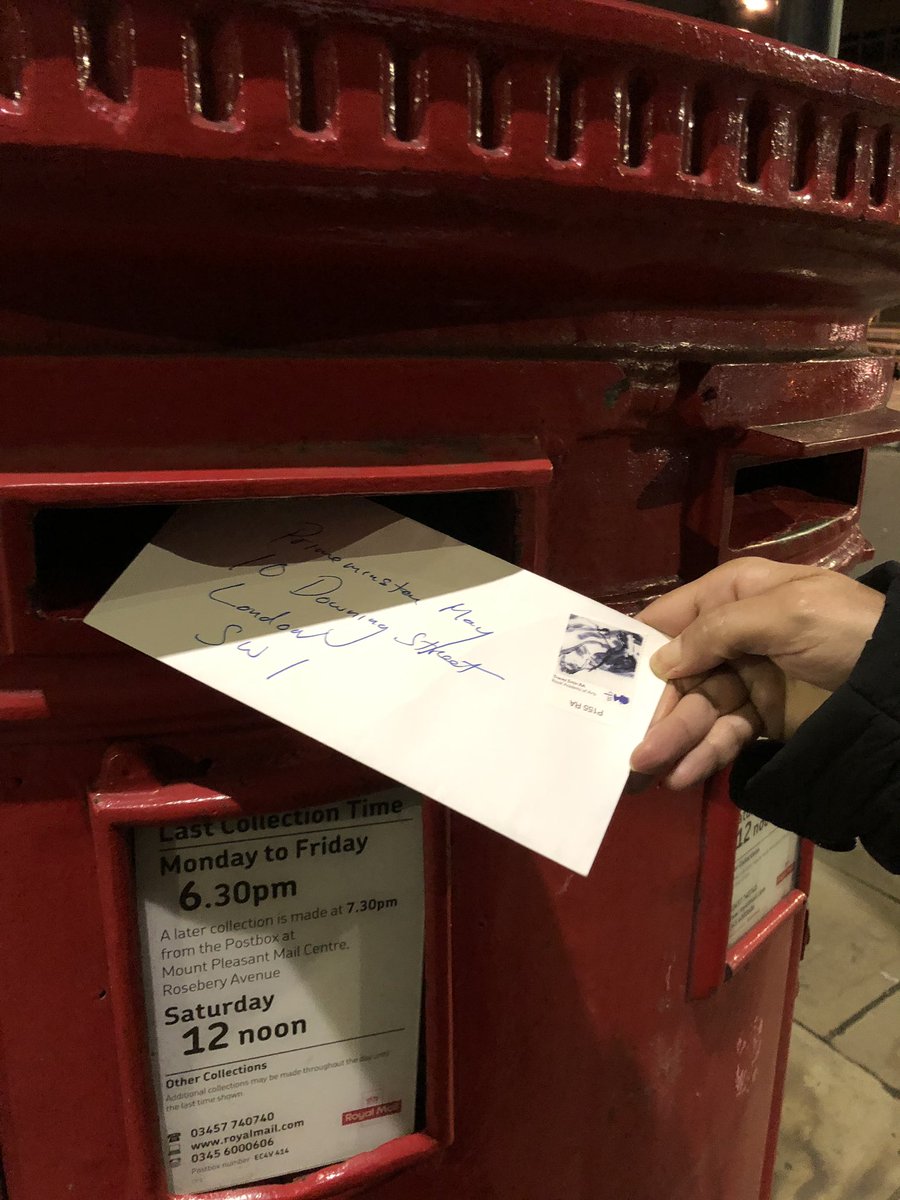 Primeminster May
10 Downing Street
London
SW1
P155 RA
Last Collection Time
Monday to Friday
6.30pm
A later collection is made at 7.30pm
from the Postbox at
Mount Pleasant Mail Centre,
Rosebery Avenue
Saturday
12 noon
Other Collections
Additional collections may be made throughout the day until
the last time shown
03457 740740
www.royalmail.com
0345 6000606
Postbox number EC4V 414
Royal Mail
12 noo